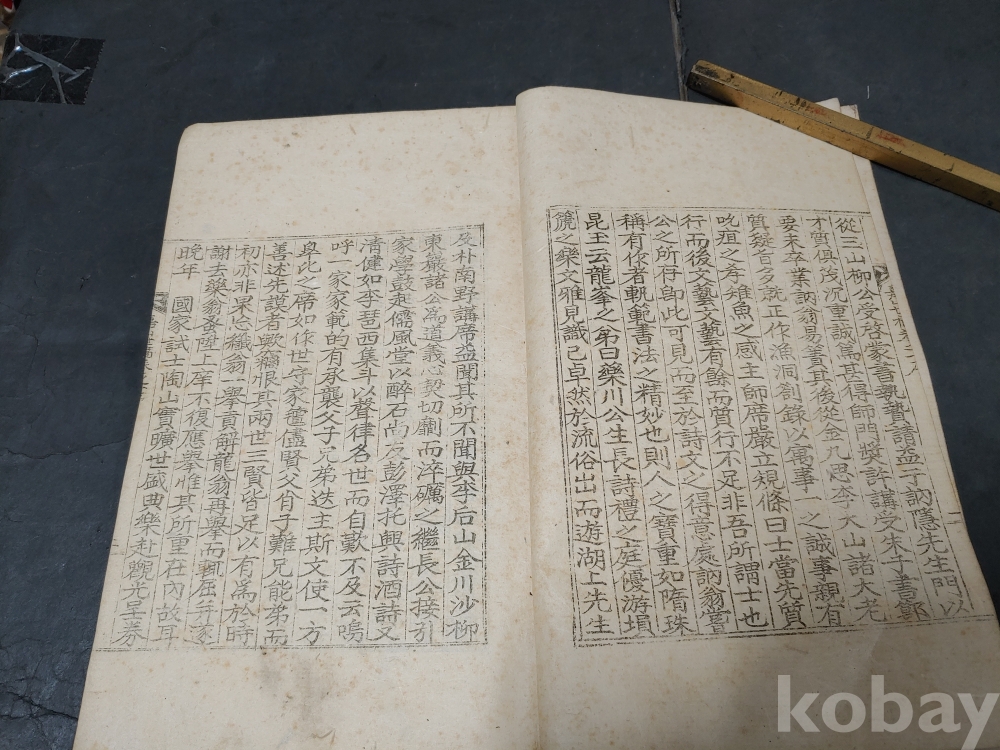 從三山柳公受啓蒙書執贄請益于訥隱先生門以
才質俱後沉重誠篤甚得師門奬許講受朱子書節
要未卒業訥翁易簀其後從金九思李大山諸大老
質疑旨多就正作漁洞劄錄以寓事一之誠事親有
吮疽之孝雉魚之感主師席嚴立規條曰士當先質
行而後文藝文藝有餘而質行不足非吾所謂士也
公之所存卽此可見而至於詩文之得意處訥翁嘗
稱有你者軌範書法之精妙也則人之寶重如隋珠
昆玉云龍峯之弟曰樂川公生長詩禮之庭優游塤
篪之樂文雅見識已卓然於流俗出而遊湖上先生
及朴南野講席益聞其所不聞與李后山金川沙柳
東巖諸公爲道義心契切劘而淬礪之繼長公接引
家學鼓起儒風堂以醉石尚友彭澤托興詩酒詩又
清健如李琶西集斗以聲律名世而自歎不及云嗚
呼一家家範的有承襲父子兄弟迭主斯文使一方
皐比之席如作世守家氊儘賢父肖子難兄能弟而
善述先謨者歟竊恨其兩世三賢皆足以有爲於時
初亦非果忘纖翁一擧貢解龍翁再擧而輒屈于家
謝去樂翁蚤陞上庠不復應擧惟其所重在內故耳
晚年 國家試士陶山實曠世盛典樂赴觀光呈券
kobay